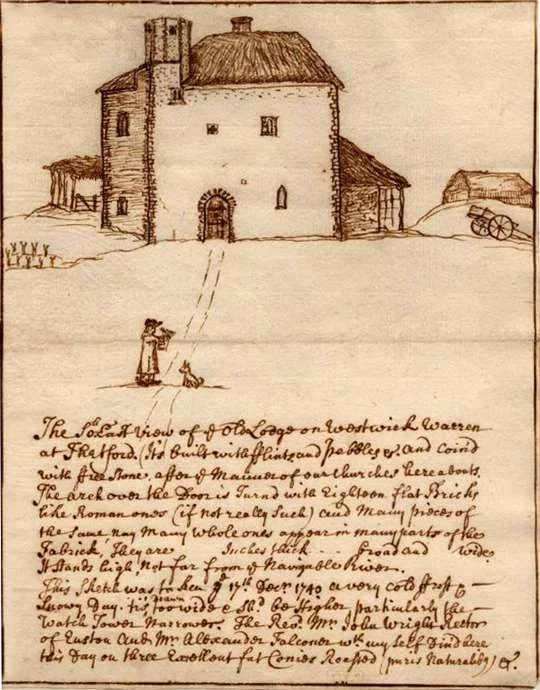 The So: East View of ye Old Lodge on Westwick Warren
at Thetford. (Its built with fflints and pebbles &c. and Coin'd
with free Stone, after ye Manner of our Churches hereabouts.
The arch over the Door is Turnd with Eighteen flat Bricks
like Roman ones (if not really such) and Many pieces of
the same nay Many whole ones appear in many parts of the
Fabrick, They are Inches thick .. broad and wide
It stands high, Not far from ye Navigable River.
This Sketch was taken ye 17th Decr. 1740 a very cold frost &
Snowy Day. tis drawn too wide & Shd. be Higher, particularly the
Watch Tower Narrower. The Revd. Mr. John Wright Rector
of Euston and Mr. Alexander Falconer wth. my self Din'd here
this Day on three Excellent fat Conies Roasted (puris Naturalibus) &c.